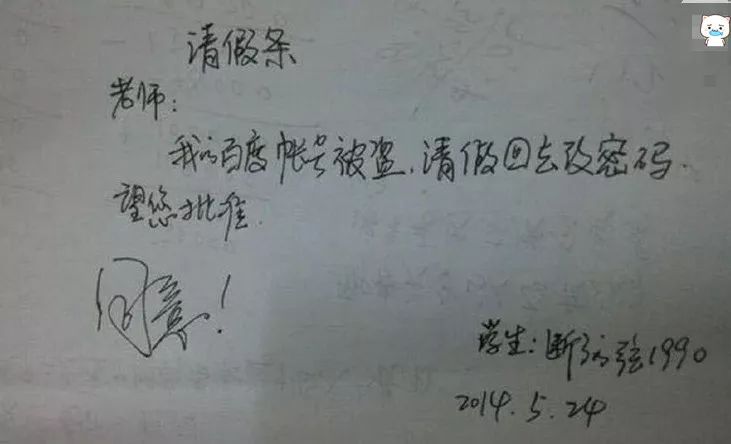 请假条
老师：
我的百度帐号被盗，请假回去改密码.
望您批准.
同意！
学生：断的弦1990
2014.5.24